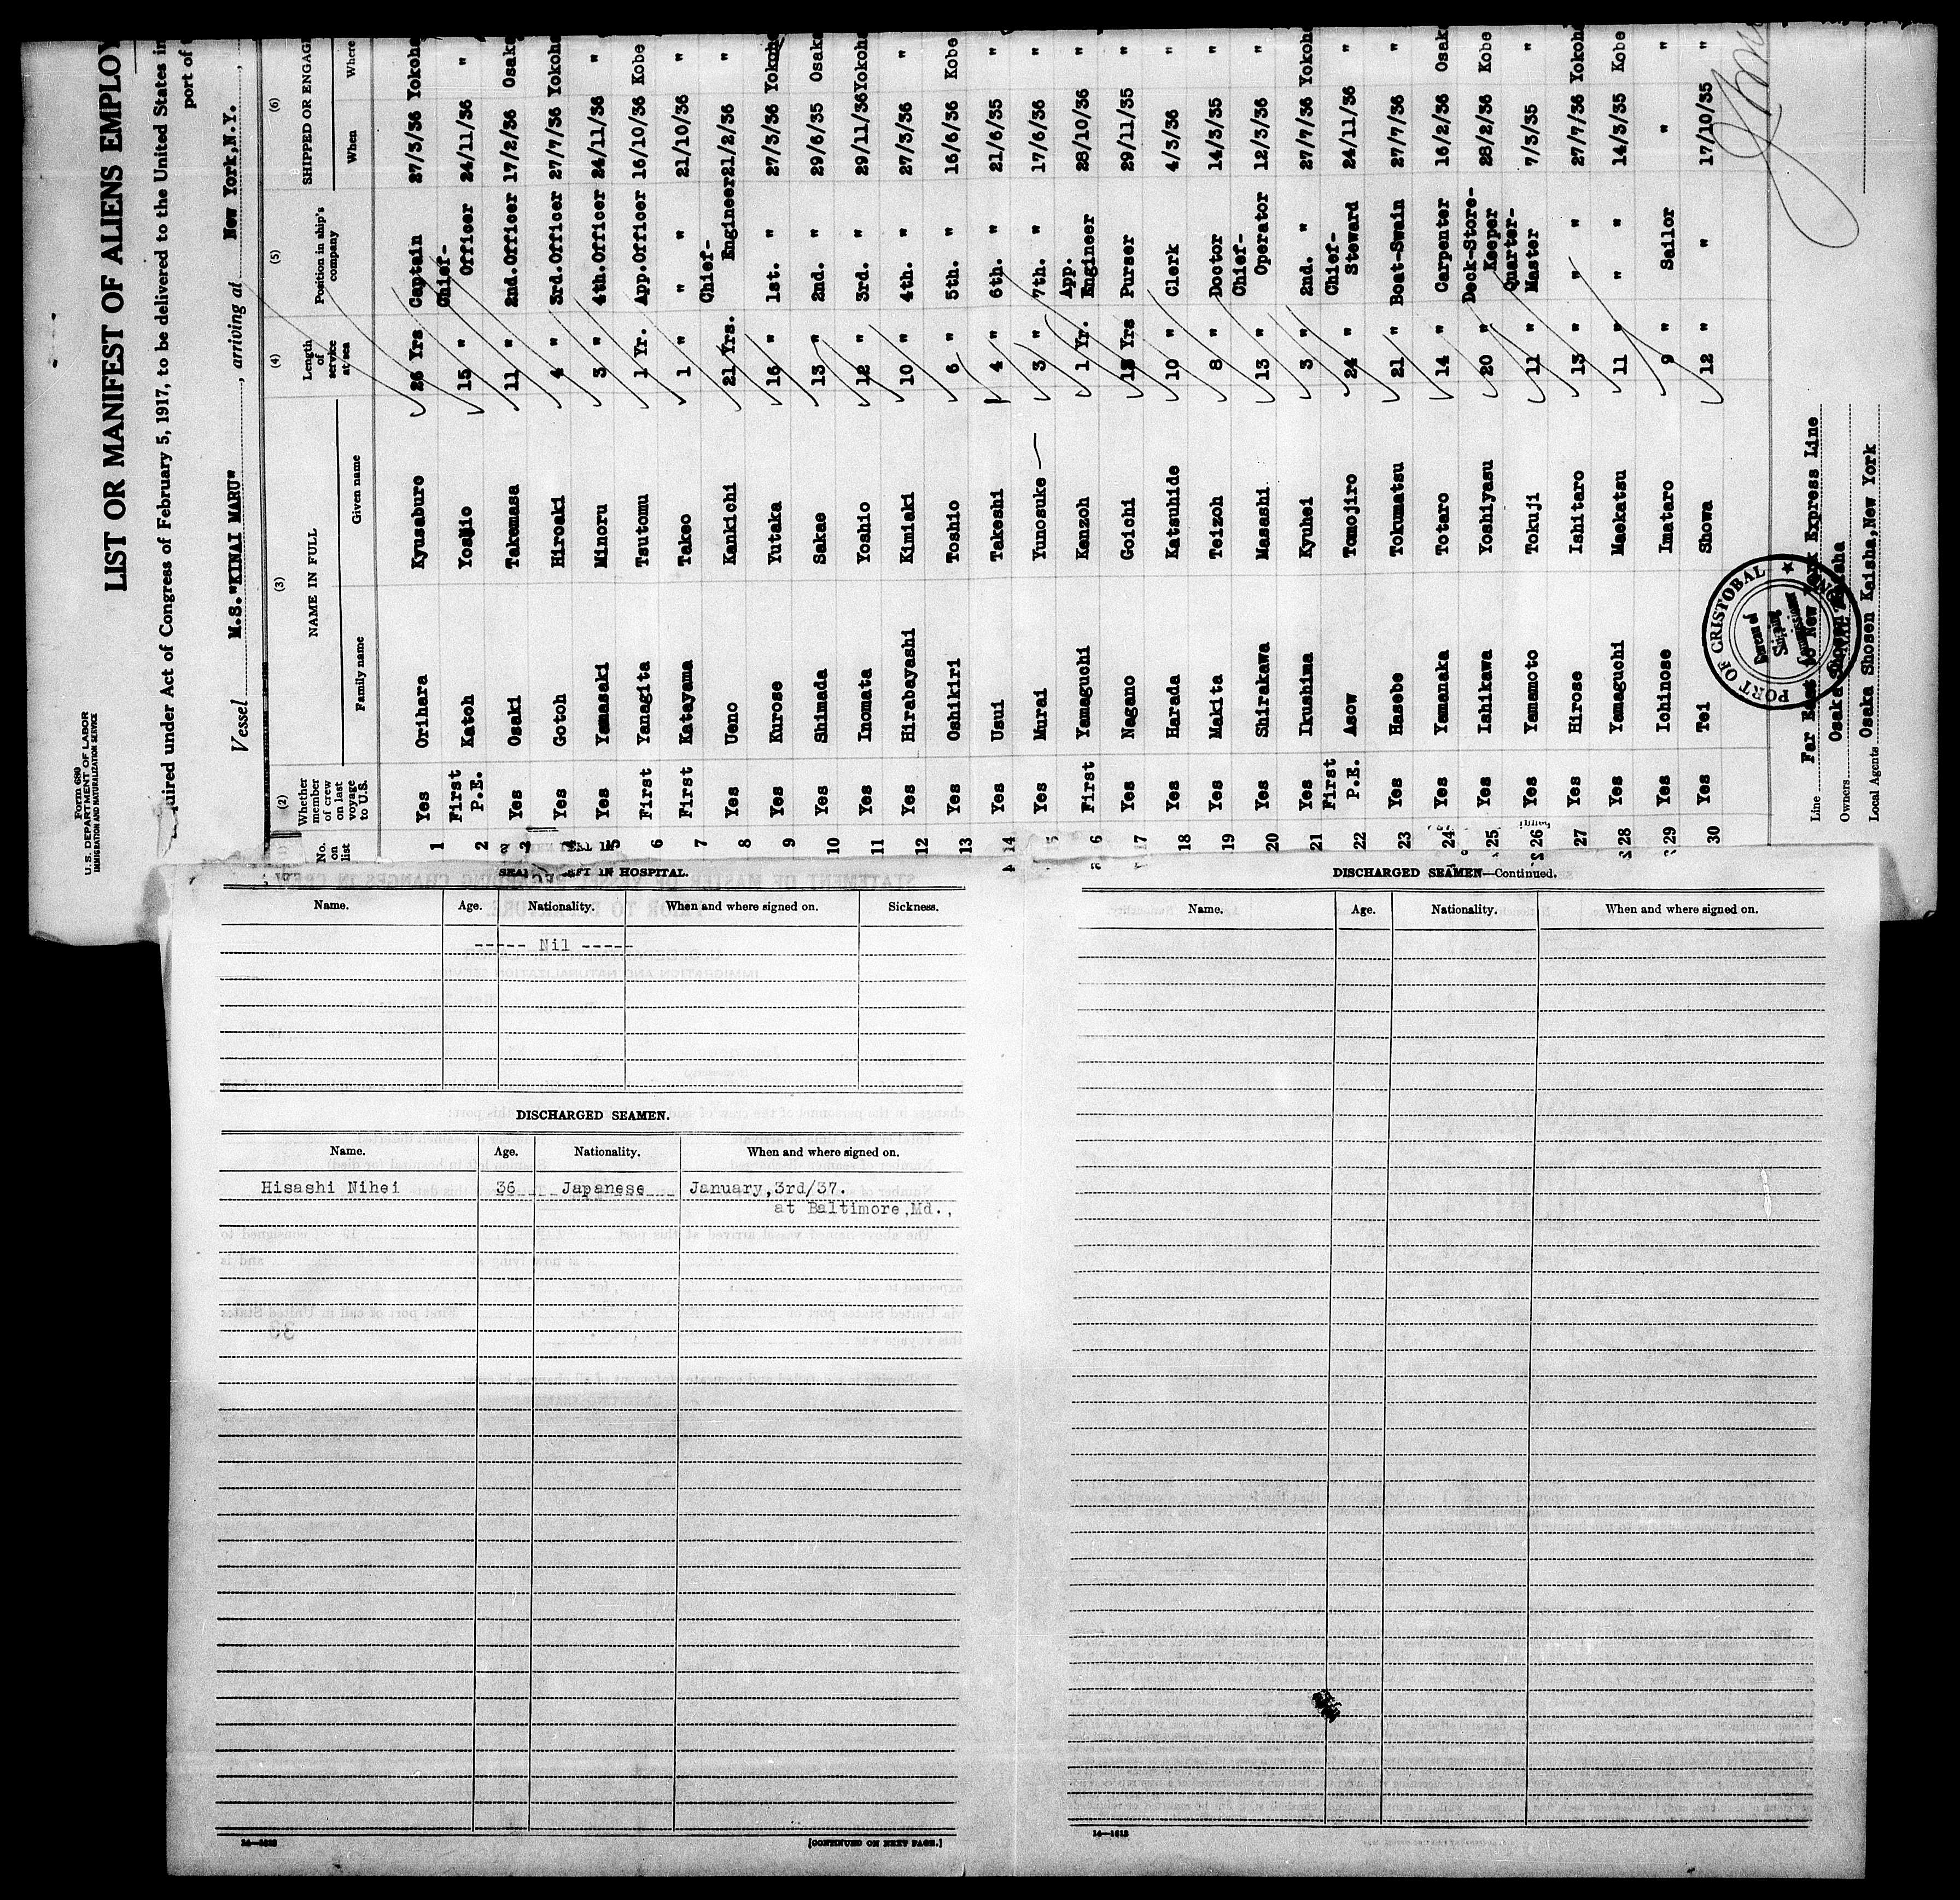 Form 689
U. S. DEPARTMENT OF LABOR
IMMIGRATION AND NATURALIZATION SERVICE
LIST OR MANIFEST OF ALIENS EMPLOY
uired under Act of Congress of February 5, 1917, to be delivered to the United States in
port of a
Vessel M.S."KINAI MARU", arriving at New York,N.Y.,
(2) (3) (4) (5) (6)
No. on list Whether member of crew on last voyage to U.S. NAME IN FULL Length of service at sea Position in ship's company SHIPPED OR ENGAG
Family name Given name When Where
1 Yes Orihara Kyusaburo 26 Yrs Captain 27/3/36 Yokoha
2 First P.E. Katoh Yoshio 15 " Chief-Officer 24/11/36 "
3 Yes Osaki Takemasa 11 " 2nd.Officer 17/2/36 Osaka
4 Yes Gotoh Hiroaki 4 " 3rd.Officer 27/7/36 Yokoha
5 Yes Yamasaki Minoru 3 " 4th.Officer 24/11/36 "
6 First Yanagita Tsutomu 1 Yr. App.Officer 16/10/36 Kobe
7 First Katayama Takeo 1 " " " 21/10/36 "
8 Yes Ueno Kankichi 21 Yrs. Chief-Engineer 21/2/36 "
9 Yes Kurose Yutaka 16 " 1st. " 27/3/36 Yokoha
10 Yes Shimada Sakae 13 " 2nd. " 29/6/35 Osaka
11 Yes Inomata Yoshio 12 " 3rd. " 29/11/36 Yokoha
12 Yes Hirabayashi Kimiaki 10 " 4th. " 27/3/36 "
13 Yes Oshikiri Toshio 6 " 5th. " 16/6/36 Kobe
14 Yes Usui Takeshi 4 " 6th. " 21/6/35 "
Yes Murai Yunosuke 3 " 7th. " 17/6/36 "
6 First Yamaguchi Kenzoh 1 Yr. App. Engineer 28/10/36 "
17 Yes Nagano Goichi Yrs Purser 29/11/35 "
18 Yes Harada Katsuhide 10 " Clerk 4/3/36 "
19 Yes Makita Teizoh 8 " Doctor 14/3/35 "
20 Yes Shirakawa Masashi 13 " Chief-Operator 12/3/36 "
21 Yes Ikushima Kyuhei 3 " 2nd. " 27/7/36 Yokoh
22 First P.E. Asow Tomojiro 24 " Chief-Steward 24/11/36 "
23 Yes Hasebe Tokumatsu 21 " Boat-Swain 27/7/36 "
24 Yes Yamanaka Totaro 14 " Carpenter 16/2/36 Osak
25 Yes Ishikawa Yoshiyasu 20 " Deck-Store-Keeper 28/2/36 Kobe
26 Yes Yamamoto Tokuji 11 " Quarter-Master 7/3/35 "
27 Yes Hirose Ishitaro 13 " " " 27/7/36 Yokoh
28 Yes Yamaguchi Maekatsu 11 " " " 14/3/35 Kobe
29 Yes Ichinose Imataro 9 " Sailor " "
30 Yes Tei Showa 12 " " 17/10/35 "
Line Far East to New York Express Line
Owners Osaka Shosen Kaisha
Local Agents Osaka Shosen Kaisha,New York
PORT OF CRISTOBAL
Bureau of Shipping Commissioner
IN HOSPITAL.
Name. Age. Nationality. When and where signed on. Sickness.
----- Nil -----
DISCHARGED SEAMEN.
Name. Age. Nationality. When and where signed on.
Hisashi Nihei 36 Japanese January,3rd/37.
at Baltimore,Md.,
14—1613
[CONTINUED ON NEXT PAGE.]
DISCHARGED SEAMEN—Continued.
Name. Age. Nationality. When and where signed on.
14—1613